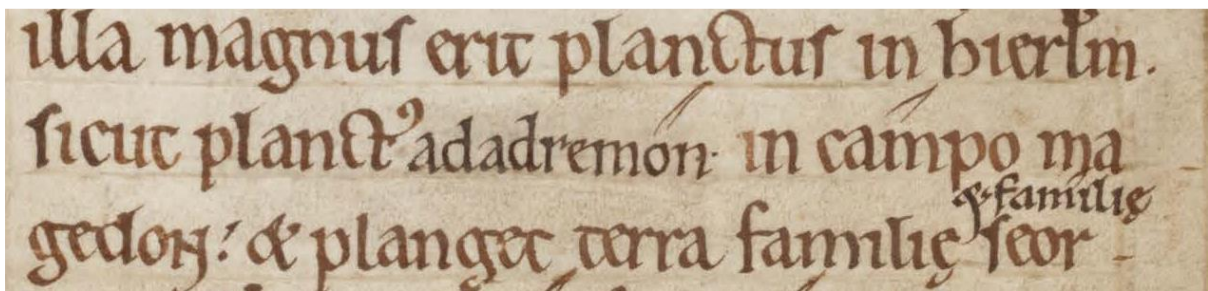 illa magnuſ erit planctuſ in hierl̄m.
ſicut planctꝰ adadremón. in campo ma
& familię
gedon: & planget terra familię ſeor-